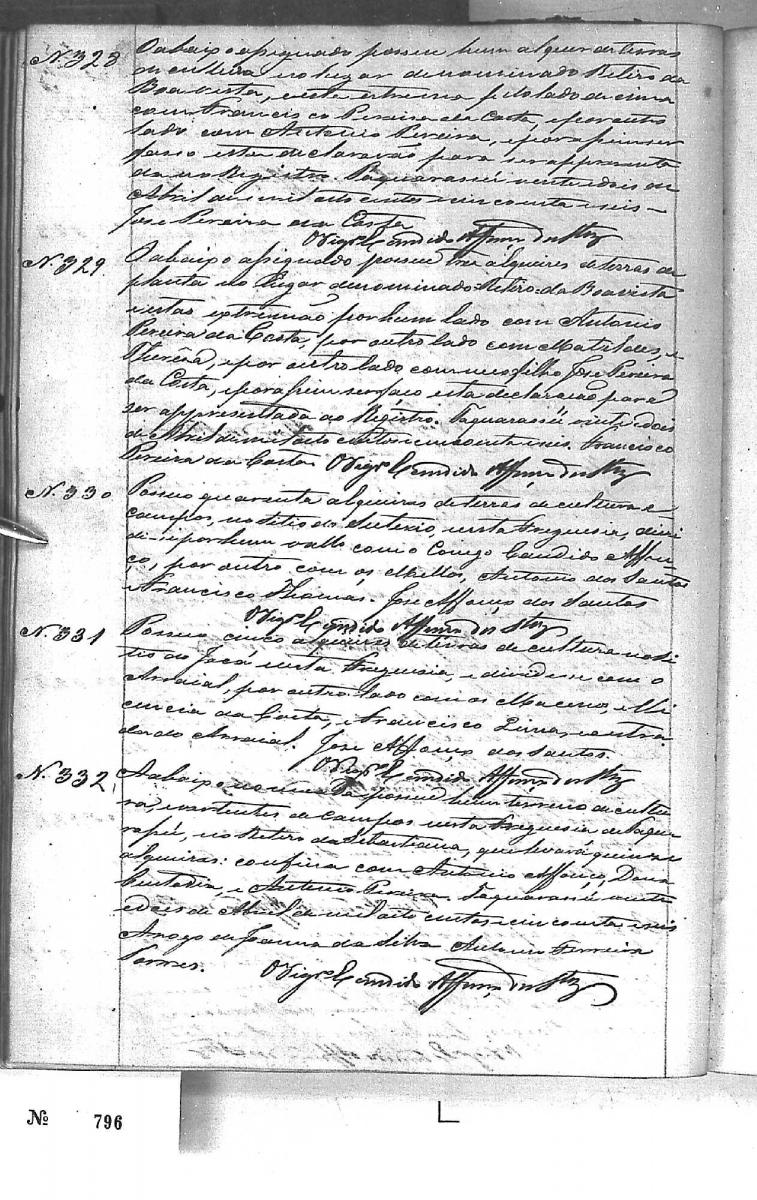 N. 328 O abaixo assignado possue hum alqueire de terras
de cultura no lugar denominado Retiro da
Boa vista, e esta extrema pelo lado de cima
com Francisco Pereira da Costa, e por outro
lado com Antonio Pereira, e por a firm ser
faço esta declaração para ser appresenta
da no Registro. Taquarassú vinte dois de
Abril de mil oito centos e cincoenta e seis
José Pereira da Costa
O Vigr.o Candido Affonço dos Stoz
N. 329 O abaixo assignado possue tres alqueires de terras de
planta no lugar denominado Retiro da Boa vista
estas extremão por hum lado com Antonio
Pereira da Costa, por outro lado com Matildes, e
Therêza, e por outro lado com meo filho José Pereira
da Costa, e por a firm ser faço esta declaração para
ser appresentada ao Registro. Taquarassú vinte dois
de Abril de mil oito centos e cincoenta e seis. Francisco
Pereira da Costa O Vigr.o Candido Affonço dos Stoz
N. 330 Possuo quarenta alqueires de terras de cultura e
campos, no sitio do, nesta Freguesia, divi
dese por hum vallo com o Conego Candido Affon
ço, por outro com os Mellos, Antonio dos Santos
e Francisco Thomas. José Affonço dos Santos
O Vigr.o Candido Affonço dos Stoz
N. 331 Possuo cinco alqueires de terras de cultura no si
tio do Jacá nesta Freguesia, e dividese com o
Arraial, por outro lado com os Macenos, e Li
da Costa, e Francisco Lima, entra
da do Arraial. José Affonço dos Santos.
O Vigr.o Candido Affonço dos Stoz
N. 332 A abaixo possue hum terreno de cultu
ra, e vertentes de Campos nesta Freguesia de Taqua
, no Retiro da Sebastiana, que levará quinze
alqueires: confina com Antonio Affonço, Dona
, e Antonio Pereira. Taquarassú vinte
e dois de Abril de mil oito centos e cincoenta e seis
A rogo de Joanna da Silva Antonio Ferreira
Torres. O Vigr.o Candido Affonço dos Stoz
No 796